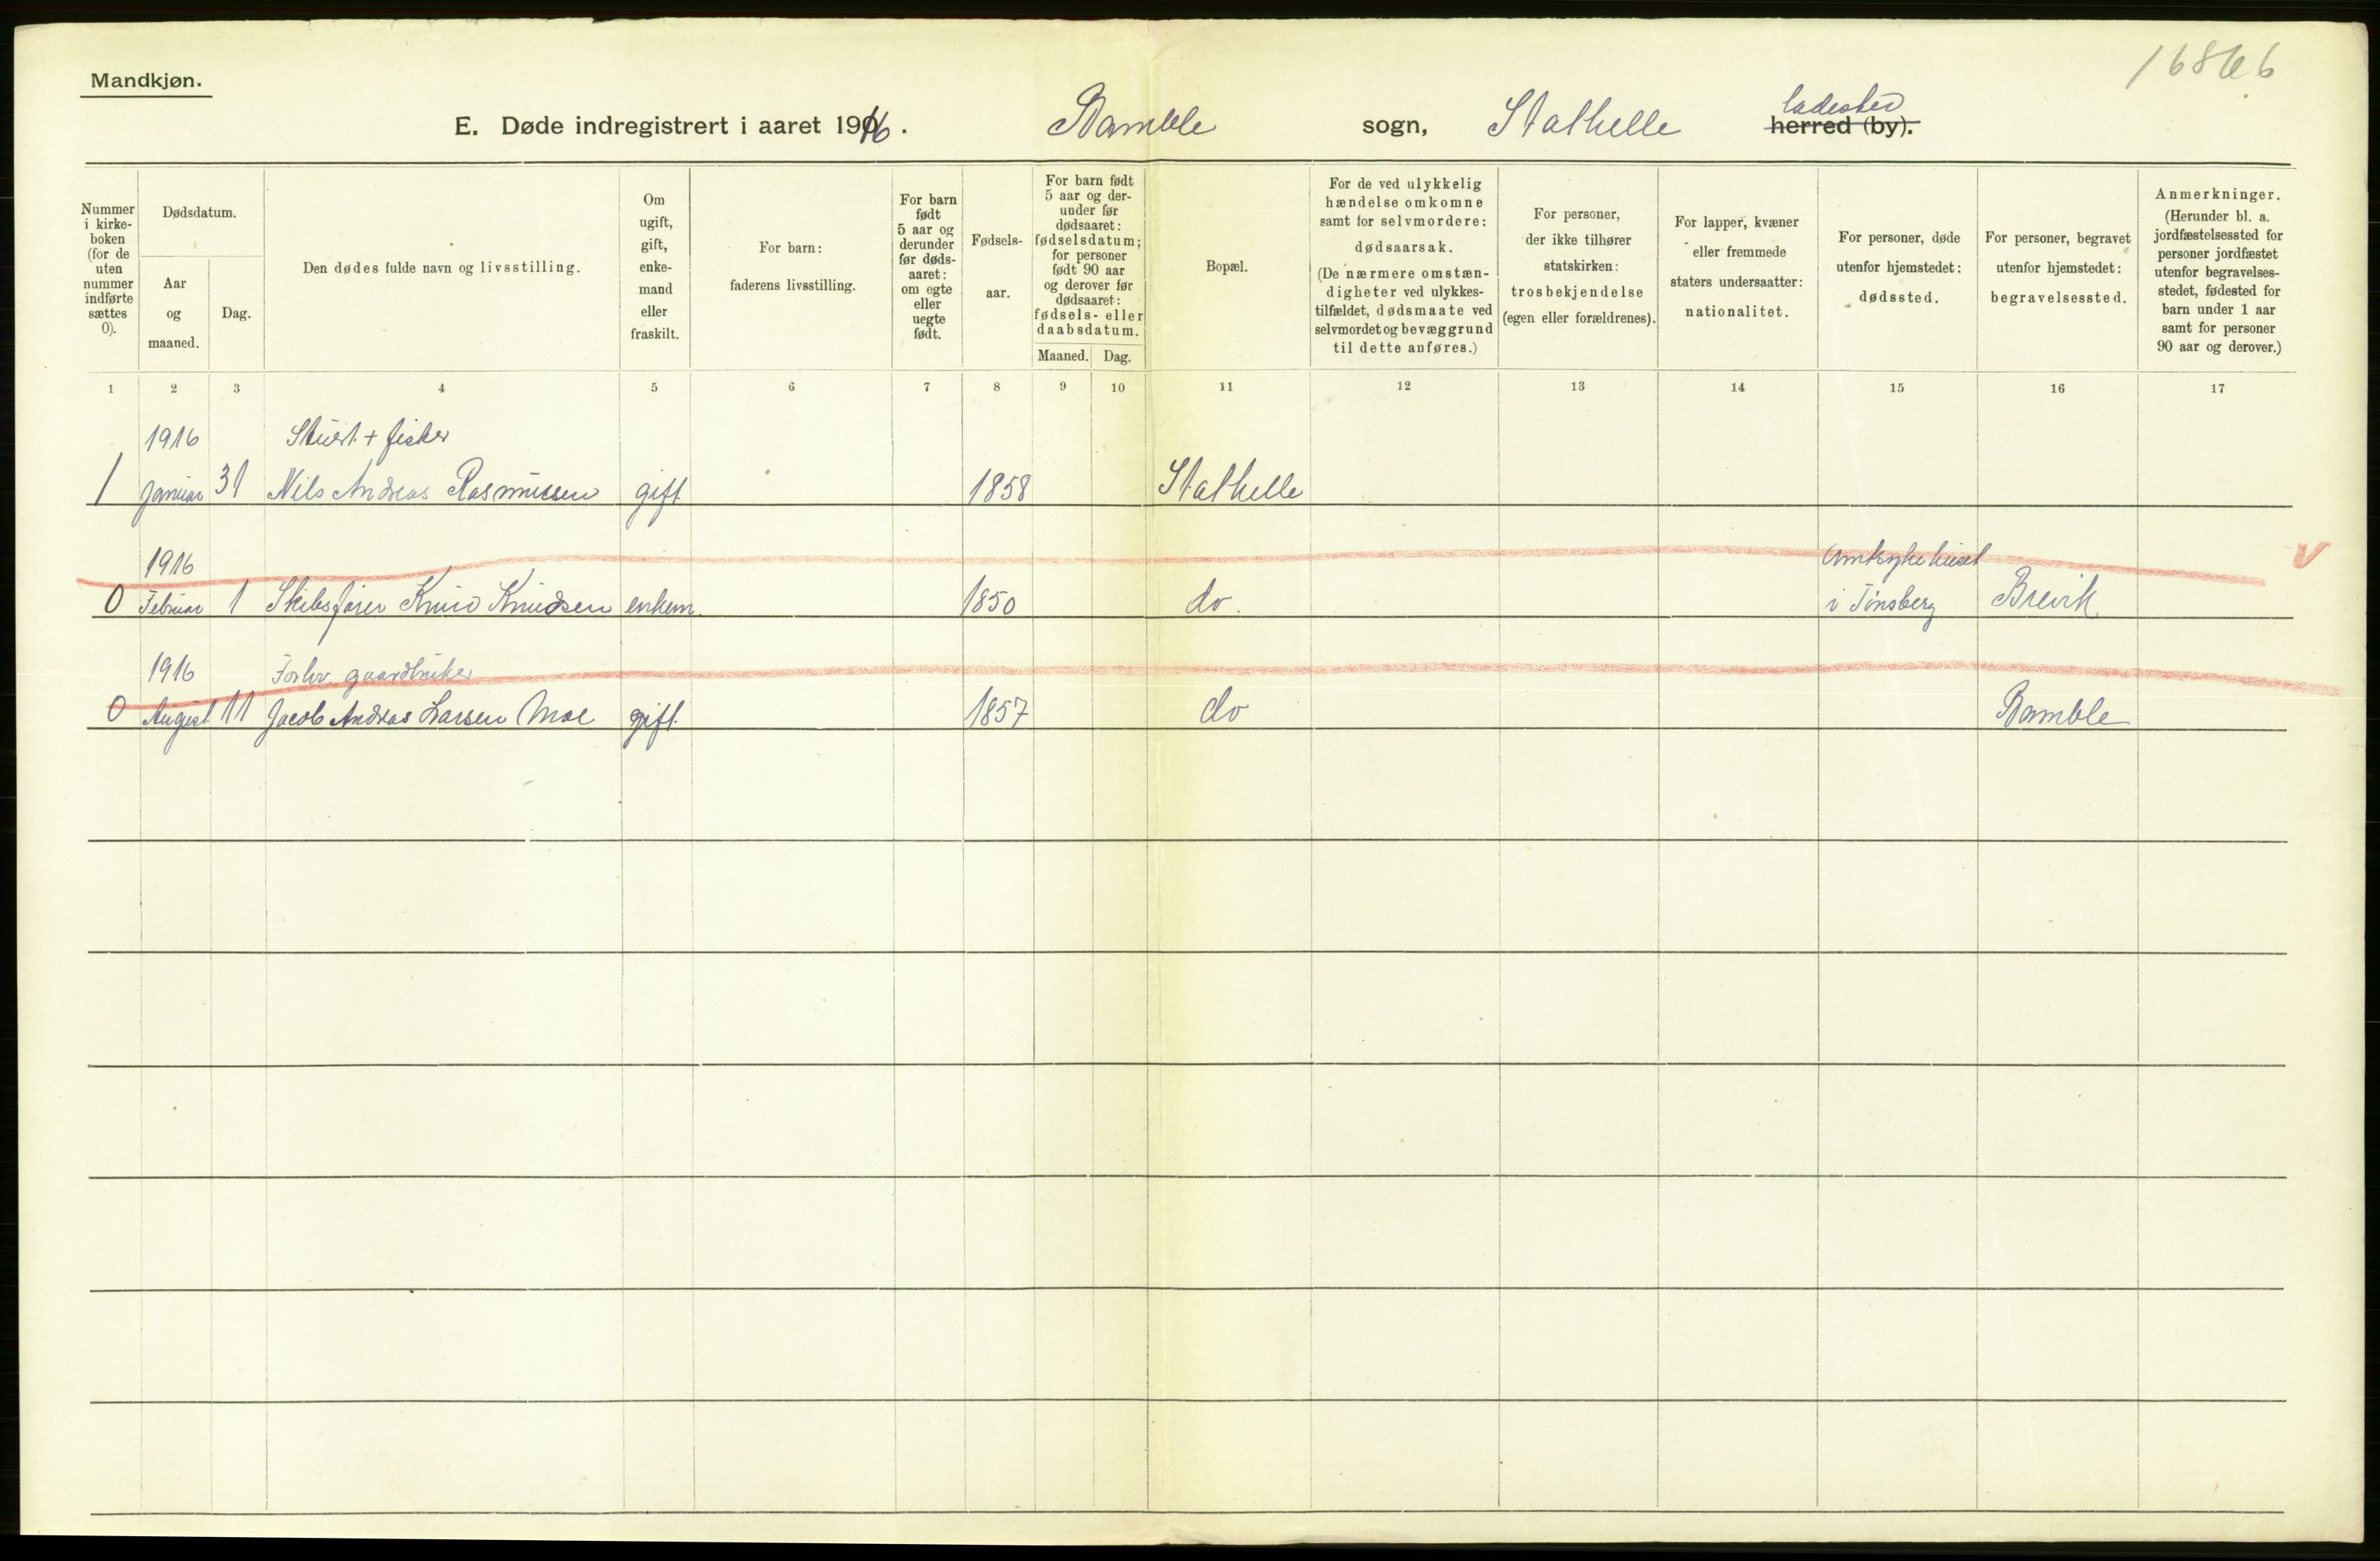 Mandkjøn.
E. Døde indregistrert i aaret 1916. Bamble sogn, Stathelle ladested herred (by).
Nummer i kirke-boken (for de uten nummer indførte sættes 0).
Dødsdatum.
Aar og maaned.
Dag.
Den dødes fulde navn og livsstilling.
Om ugift, gift, enke-mand eller fraskilt.
For barn: faderens livsstilling.
For barn født 5 aar og derunder før døds-aaret: om egte eller uegte født.
Fødsels-aar.
For barn født 5 aar og der-under før dødsaaret: fødselsdatum; for personer født 90 aar og derover før dødsaaret: fødsels- eller daabsdatum.
Maaned. Dag.
Bopæl.
For de ved ulykkelig hændelse omkomne samt for selvmordere: dødsaarsak. (De nærmere omstæn-digheter ved ulykkes-tilfældet, dødsmaate ved selvmordet og bevæggrund til dette anføres.)
For personer, der ikke tilhører statskirken: trosbekjendelse (egen eller forældrenes).
For lapper, kvæner eller fremmede staters undersaatter: nationalitet.
For personer, døde utenfor hjemstedet: dødssted.
For personer, begravet utenfor hjemstedet: begravelsessted.
Anmerkninger. (Herunder bl. a. jordfæstelsessted for personer jordfæstet utenfor begravelses-stedet, fødested for barn under 1 aar samt for personer 90 aar og derover.)
1 2 3 4 5 6 7 8 9 10 11 12 13 14 15 16 17
1916 Stuert + fisker
1 Januar 31 Nils Andreas Rasmussen gift 1858 Stathelle
1916 Amtsykehuset
0 Februar 1 Skibsfører Knud Knudsen enkem. 1850 do. i Tønsberg Brevik
1916 Forhv. gaardbruker
0 August 11 Jacob Andreas Larsen Moe gift 1857 do Bamble